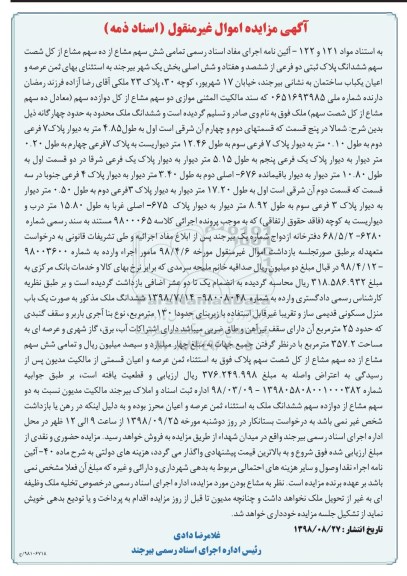 آگهی مزایده اموال غیرمنقول (اسناد ذمه)
به استناد مواد ۱۲۱ و ۱۲۲ – آئین نامه اجرای مفاد اسناد رسمی تمامی شش سهم مشاع از ده سهم مشاع از کل شصت
سهم ششدانگ پلاک ثبتی دو فرعی از ششصد و هفتاد و شش اصلی بخش یک شهر بیرجند به استثنای بهای ثمن عرصه و
اعیان یکباب ساختمان به نشانی بیرجند، خیابان ۱۷ شهریور، کوچه ۳۰، پلاک ۲۳ ملکی آقای رضا آزاده فرزند رمضان
دارنده شماره ملی ۰۶۵۱۶۹۳۹۸۵ که سند مالکیت المثنی موازی دو سهم مشاع از کل دوازده سهم (معادل ده سهم
مشاع از کل شصت سهم) ملک فوق به نام وی صادر و تسلیم گردیده است و ششدانگ ملک محدود به حدود چهارگانه ذیل
بدین شرح: شمالا در پنج قسمت که قسمتهای دوم و چهارم آن شرقی است اول به طول ۴.۸۵ متر به دیوار پلاک ۷ فرعی
دوم به طول ۰.۱۰ متر به دیوار پلاک ۷ فرعی سوم به طول ۱۲.۴۶ متر دیواریست به پلاک ۷ فرعی چهارم به طول ۰.۲۰
متر دیوار به دیوار پلاک یک فرعی پنجم به طول ۵.۱۵ متر دیوار به دیوار پلاک یک فرعی شرقا در دو قسمت اول به
طول ۱۰.۸۰ متر دیوار به دیوار باقیمانده ۶۷۶- اصلی دوم به طول ۳.۴۰ متر دیوار به دیوار پلاک ۴ فرعی جنوبا در سه
قسمت که قسمت دوم آن شرقی است اول به طول ۱۷.۲۰ متر دیوار به دیوار پلاک ۳ فرعی دوم به طول ۰.۵۰ متر دیوار
به دیوار پلاک ۳ فرعی سوم به طول ۸.۹۲ متر دیوار به دیوار پلاک ۶۷۵- اصلی غربا به طول ۱۵.۸۰ متر درب و
دیواریست به کوچه (فاقد حقوق ارتفاقی) که به موجب پرونده اجرائی کلاسه ۹۸۰۰۰۶۵ مستند به سند رسمی شماره
۶۲۸۰- ۶۸/۵/۲ دفترخانه ازدواج شماره یک بیرجند پس از ابلاغ مفاد اجرائیه و طی تشریفات قانونی به درخواست
متعهدله برطبق صورتجلسه بازداشت اموال غیرمنقول مورخه ۹۸/۴/۶ مامور اجراء وارده به شماره ۹۸۰۰۳۶۰۰
– ۹۸/۴/۱۲ در قبال مبلغ دو میلیون ریال صداقیه خانم ملیحه سرمدی که برابر نرخ بهای کالا و خدمات بانک مرکزی به
مبلغ ۳۱۸.۵۸۶.۹۳۲ ریال محاسبه گردیده به انضمام یک تا دو عشر اضافی بازداشت گردیده است و بر طبق نظریه
کارشناس رسمی دادگستری وارده به شماره ۹۸۰۰۸۰۴۸- ۱۳۹۸/۷/۱۴ ششدانگ ملک مذکور به صورت یک باب
منزل مسکونی قدیمی ساز و تقریبا غیرقابل استفاده با زیربنای حدودا ۱۳۰ مترمربع، نوع بنا آجری باربر و سقف گنبدی
که حدود ۲۵ مترمربع آن دارای سقف تیرآهن و طاق ضربی میباشد دارای اشتراکات آب، برق، گاز شهری و عرصه ای به
مساحت ۳۵۷.۲ مترمربع با درنظر گرفتن جمیع جهات به مبلغ چهار میلیارد و سیصد میلیون ریال و تمامی شش سهم
مشاع از ده سهم مشاع از کل شصت سهم پلاک فوق به استثناء ثمن عرصه و اعیان قسمتی از مالکیت مدیون پس از
رسیدگی به اعتراض واصله به مبلغ ۳۷۶.۲۴۹.۹۹۸ ریال ارزیابی و قطعیت یافته است، بر طبق جوابیه
شماره ۱۳۹۸۵۸۰۸۰۰۱۰۰۰۳۸۲ – ۹۸/۰۳/۰۹ اداره ثبت اسناد و املاک بیرجند مالکیت مدیون نسبت به دو
سهم مشاع از دوازده سهم ششدانگ ملک به استثناء ثمن عرصه و اعیان محرز بوده و به دلیل اینکه در رهن یا بازداشت
شخص غیر نمی باشد به درخواست بستانکار در روز دوشنبه مورخه ۱۳۹۸/۰۹/۲۵ از ساعت ۹ الی ۱۲ ظهر در محل
اداره اجرای اسناد رسمی بیرجند واقع در میدان شهداء از طریق مزایده به فروش خواهد رسید. مزایده حضوری و نقدی از
مبلغ ارزیابی شده فوق شروع و به بالاترین قیمت پیشنهادی واگذار می گردد، هزینه های دولتی به شرح ماده ۴۰- آئین
نامه اجراء نقدا وصول و سایر هزینه های احتمالی مربوط به بدهی شهرداری و دارائی و غیره که مبلغ آن فعلا مشخص نمی
باشد بر عهده برنده مزایده است. نظر به مشاع بودن مورد مزایده، اداره اجرای اسناد رسمی درخصوص تخلیه ملک وظیفه
ای به غیر از تحویل ملک نخواهد داشت و چنانچه مدیون تا قبل از روز مزایده اقدام به پرداخت و یا تودیع بدهی خویش
نماید از تشکیل جلسه مزایده خودداری خواهد شد.
تاریخ انتشار : ۱۳۹۸/۰۸/۲۷
غلامرضا دادی
رئیس اداره اجرای اسناد رسمی بیرجند
۹۸۱۰۶۷۱۵/ح